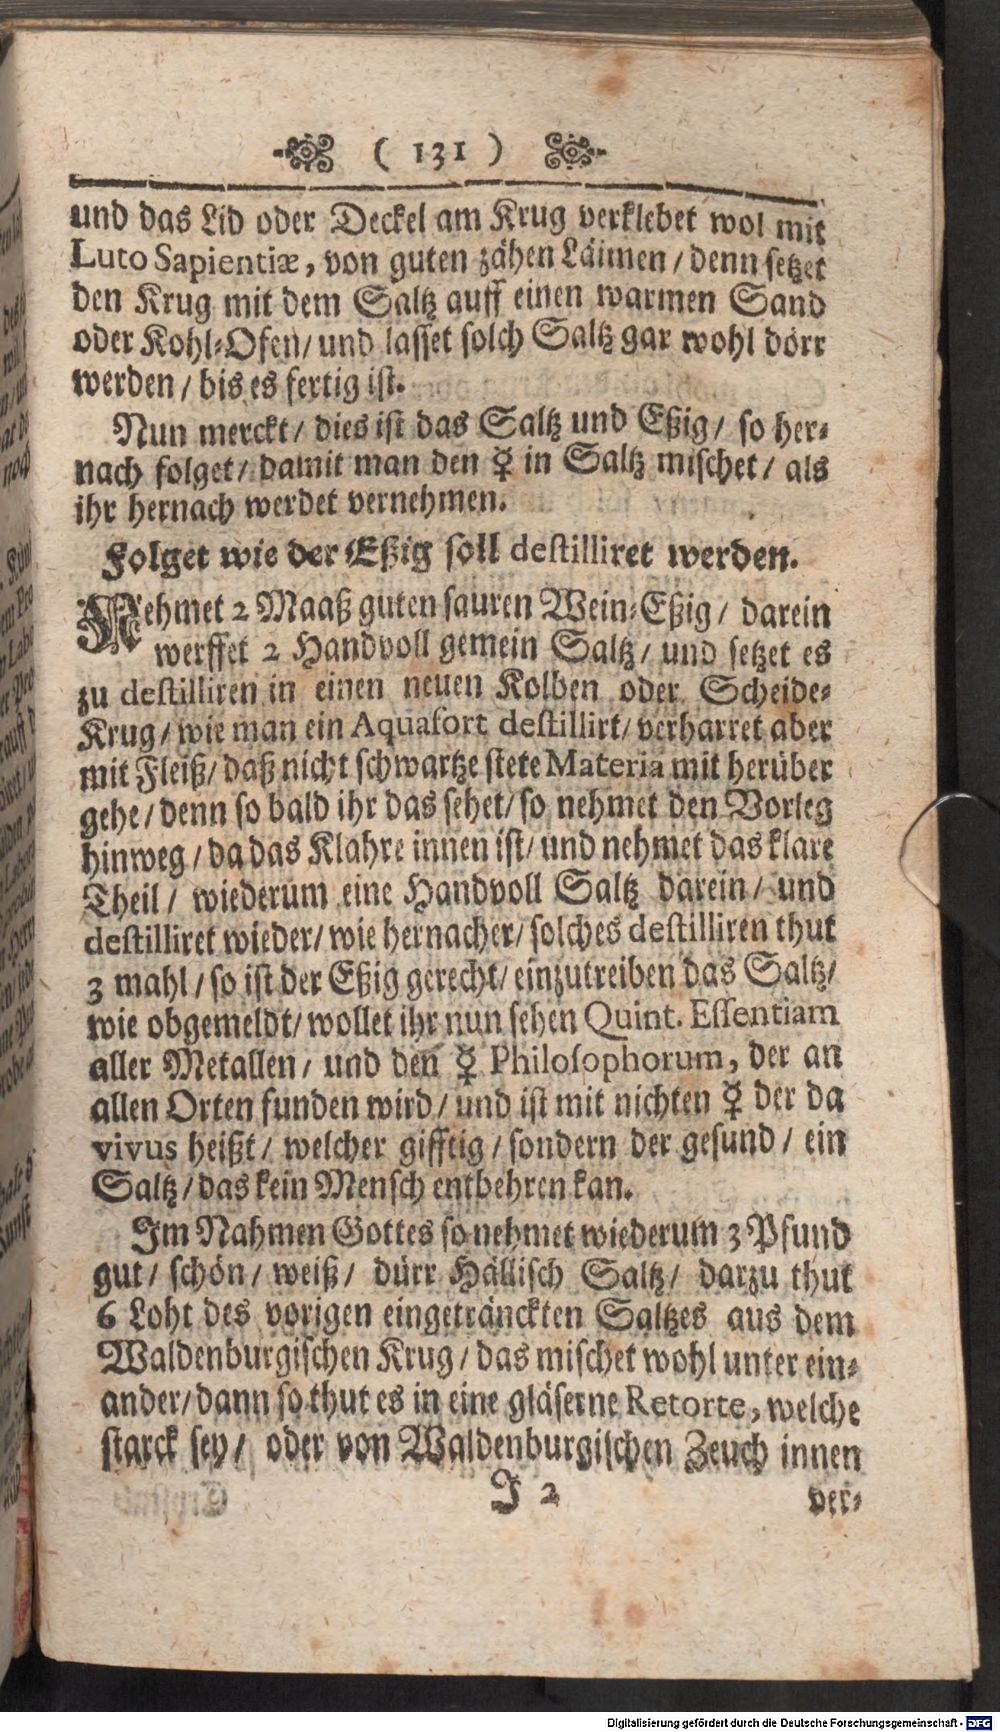 ( 131 )
und das Lid oder Deckel am Krug verklebet wol mit
Luto Sapientiæ, von guten zähen Läimen / denn setzet
den Krug mit dem Saltz auff einen warmen Sand
oder Kohl-Ofen / und lasset solch Saltz gar wohl dörr
werden / bis es fertig ist.
Nun merckt / dies ist das Saltz und Eßig / so her-
nach folget / damit man den ☿ in Saltz mischet / als
ihr hernach werdet vernehmen.
Folget wie der Eßig soll destilliret werden.
Nehmet 2 Maaß guten sauren Wein-Eßig / darein
werffet 2 Handvoll gemein Saltz / und setzet es
zu destilliren in einen neuen Kolben oder Scheide-
Krug / wie man ein Aquafort destillirt / verharret aber
mit Fleiß / daß nicht schwartze stete Materia mit herüber
gehe / denn so bald ihr das sehet / so nehmet den Vorleg
hinweg / da das Klahre innen ist / und nehmet das klare
Theil / wiederum eine Handvoll Saltz darein / und
destilliret wieder / wie hernacher / solches destilliren thut
3 mahl / so ist der Eßig gerecht / einzutreiben das Saltz /
wie obgemeldt / wollet ihr nun sehen Quint. Essentiam
aller Metallen / und den ☿ Philosophorum, der an
allen Orten funden wird / und ist mit nichten ☿ der da
vivus heißt / welcher gifftig / sondern der gesund / ein
Saltz / das kein Mensch entbehren kan.
Im Nahmen Gottes so nehmet wiederum 3 Pfund
gut / schön / weiß / dürr Hällisch Saltz / darzu thut
6 Loht des vorigen eingeträncкten Saltzes aus dem
Waldenburgischen Krug / das mischet wohl unter ein-
ander / dann so thut es in eine gläserne Retorte, welche
starck sey / oder von Waldenburgischen Zeuch innen
J 2
ver-
Digitalisierung gefördert durch die Deutsche Forschungsgemeinschaft - DFG